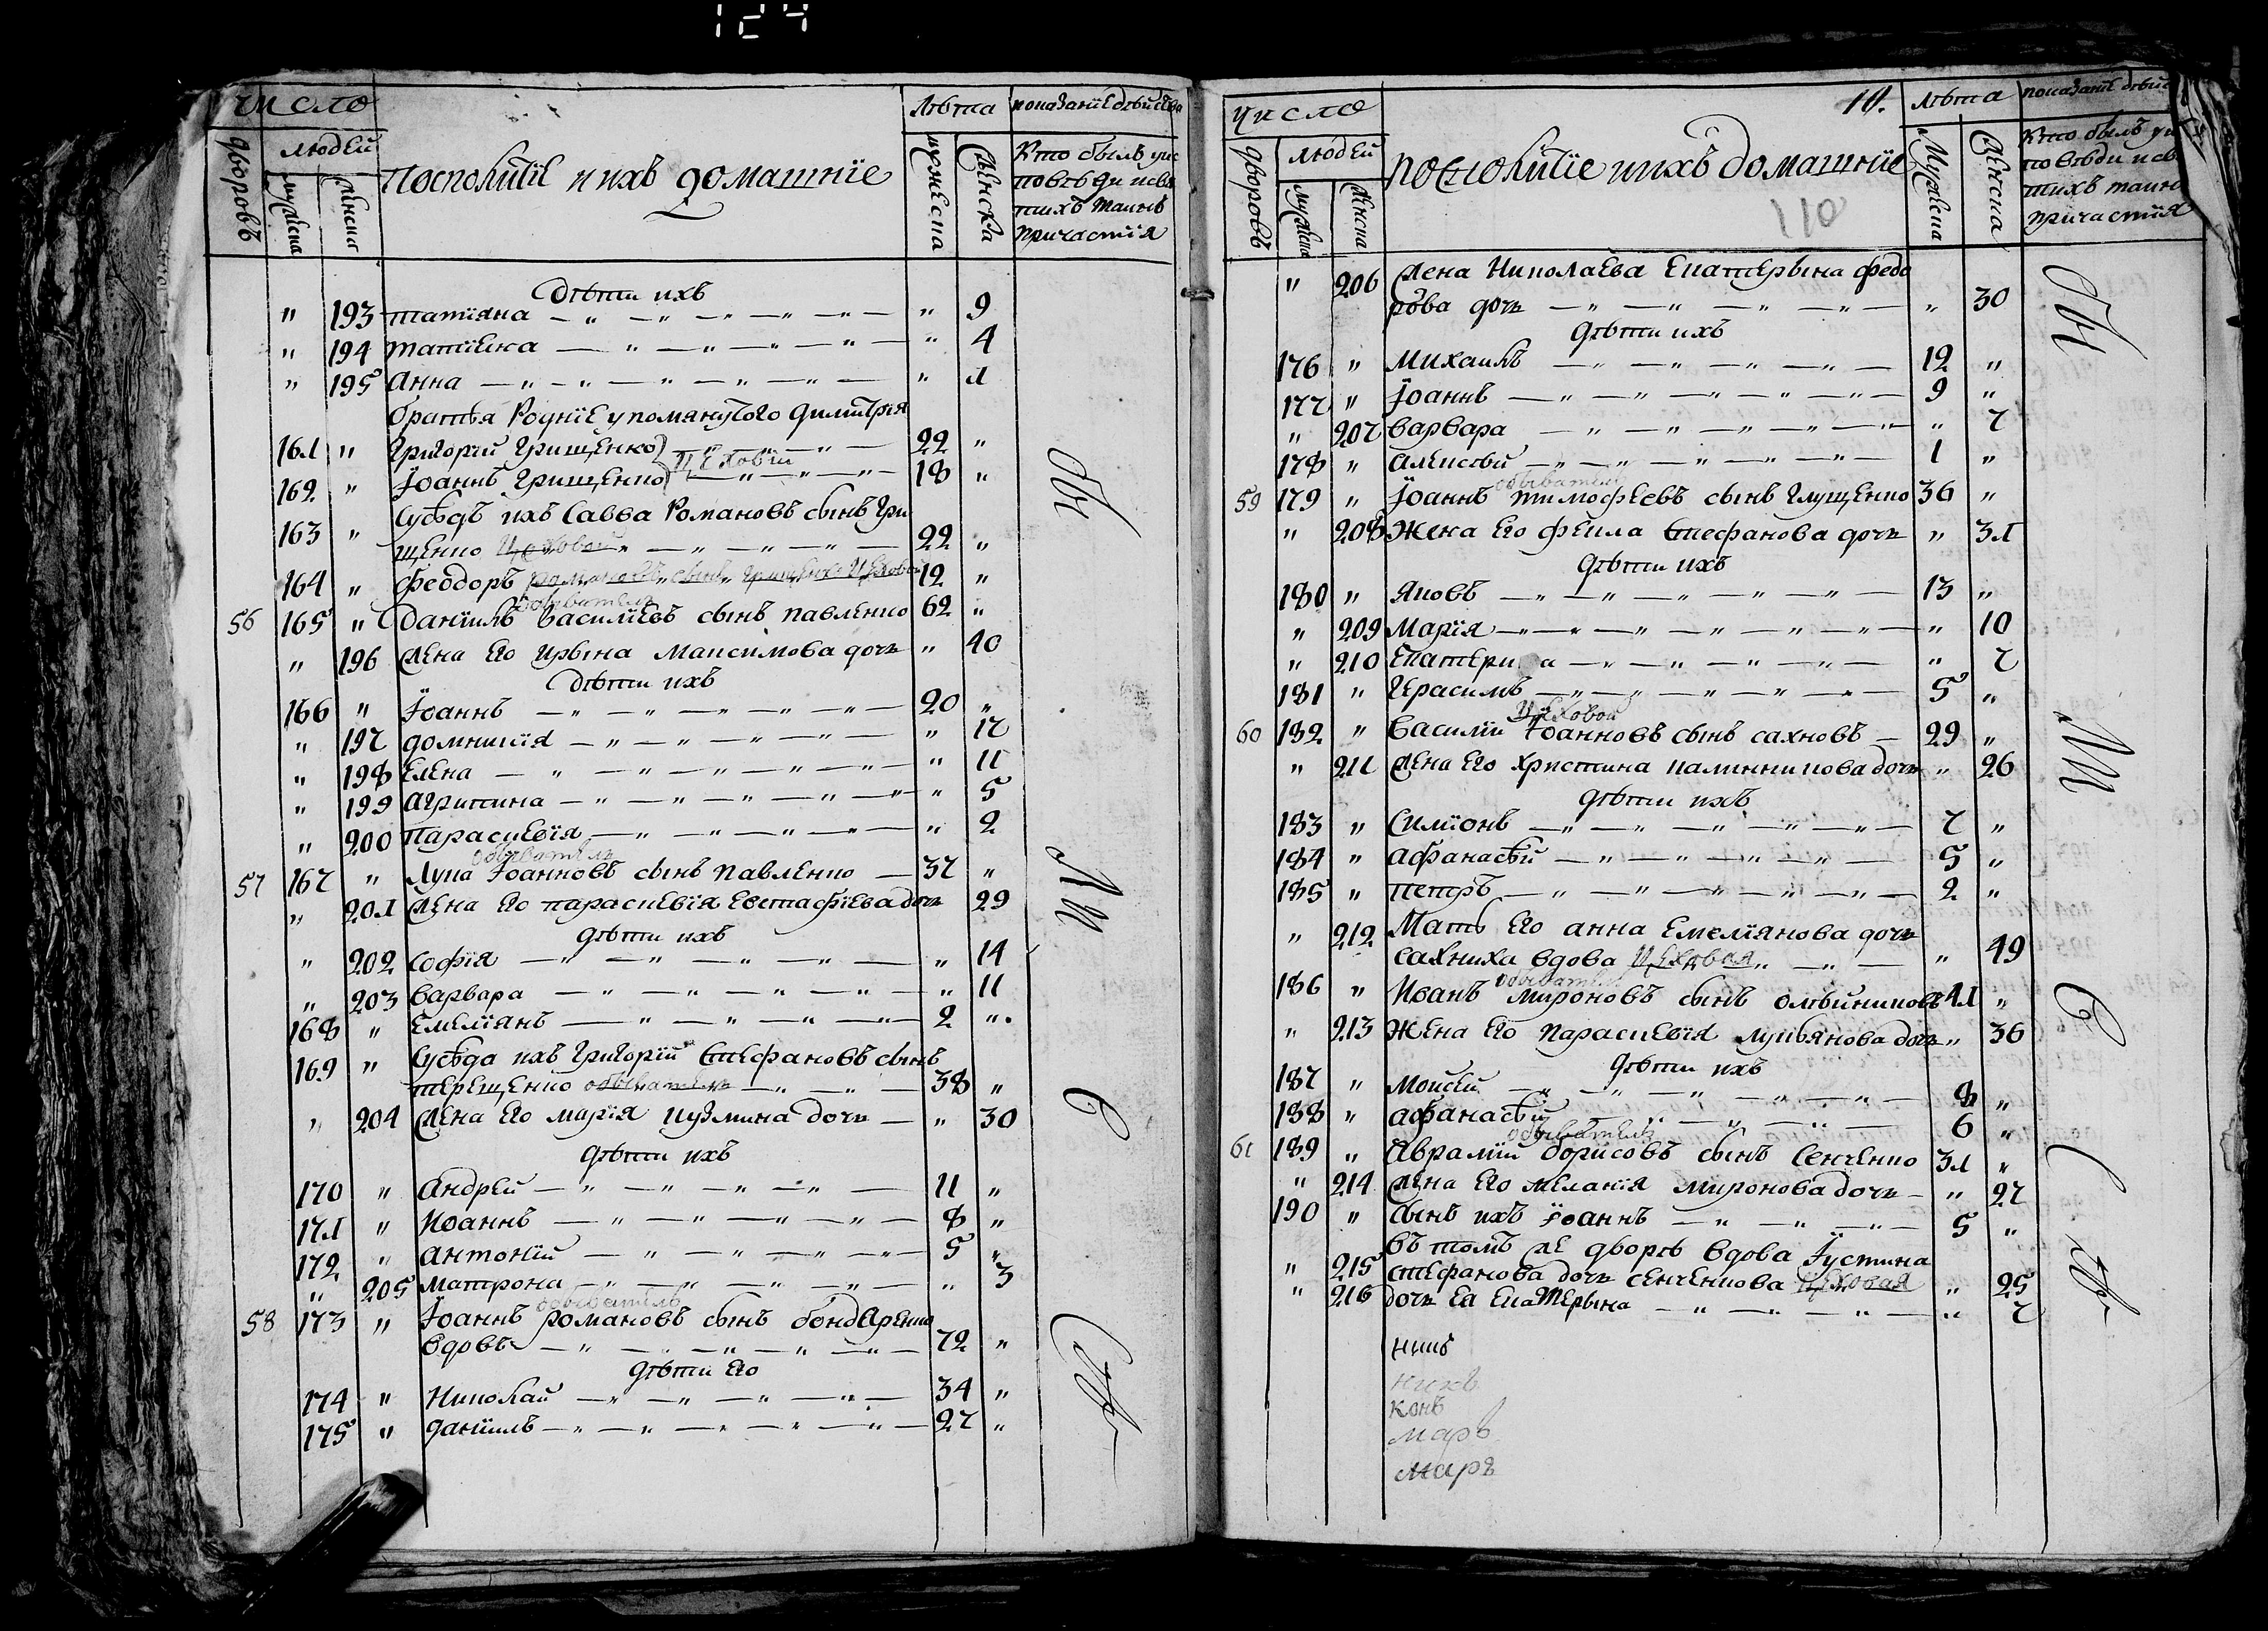 124
число
людей
дворовъ
мужска
женска
Посполитіе и ихъ домашніе
Лѣта
мужеска
женска
показаніе дѣйства
Кто былъ у ис
повѣди и свя
тихъ таинъ
причастія
Дѣти ихъ
" 193 татіяна " 9
" 194 татіена " 4
" 195 Анна " 1
братья родніе упомянутого димитрія
161 " григорій грищенко 22 "
цеховій
162 " Іоаннъ грищенко 18 "
Сусѣдъ ихъ Савва Романовъ сынъ гри
163 " щенко цеховой 22 "
164 " Феодоръ романовъ сынъ грищенко цеховой 12 "
обыватель
56 165 " Даніилъ василіевъ сынъ павленко 62 "
" 196 жена его ирына максимова дочь " 40
Дѣти ихъ
166 " Іоаннъ 20 "
" 197 домникія " 17
" 198 Елена " 11
" 199 агрипина " 5
" 200 Параскевія " 2
обыватель
57 167 " Лука Іоанновъ сынъ павленко 37 "
" 201 жена его параскевія евстафіева дочь 29
дѣти ихъ
" 202 софія " 14
" 203 варвара " 11
168 " Емеліянъ 2 "
169 " Сусѣда ихъ григорій Стефановъ сынъ
терещенко обыватель 38 "
" 204 жена его марія кузмина дочь " 30
дѣти ихъ
170 " Андрей 11 "
171 " Иоаннъ 8 "
172 " антоній 5 "
" 205 матрона " 3
обыватель
58 173 " Іоаннъ романовъ сынъ бондаренко
вдовъ 72 "
дѣти его
174 " Николай 34 "
175 " даніилъ 27 "
Бы
ли
С
число
людей
дворовъ
мужска
женска
10.
посполитіе и ихъ домашніе
110
лѣта
Мужеска
женска
показаніе дѣйс
Кто былъ у ис
повѣди и свя
тихъ таинъ
причастія
" 206 жена Николаева Екатерына федо
рова дочь " 30
дѣти ихъ
176 " михаилъ 12 "
177 " Іоаннъ 9 "
" 207 варвара " 7
178 " алексѣй 1 "
обыватель
59 179 " Іоаннъ тимофеевъ сынъ глущенко 36 "
" 208 Жена его фекла Стефанова дочь " 31
дѣти ихъ
180 " яковъ 13 "
" 209 марія " 10
" 210 Екатерина " 7
181 " герасимъ 5 "
цеховой
60 182 " василій Іоанновъ сынъ сахновъ 29 "
" 211 жена его христина калинникова дочь " 26
дѣти ихъ
183 " Симіонъ 7 "
184 " афанасѣй 5 "
185 " петръ 2 "
" 212 Мать его анна Емеліянова дочь
сахниха вдова цеховая " 49
обыватель
186 " Иванъ мироновъ сынъ олѣйниковъ 41 "
" 213 Жена его параскевія лукьянова дочь " 36
дѣти ихъ
187 " моисей 8 "
188 " афанасѣй 6 "
обыватель
61 189 " аврамій борисовъ сынъ Сенченко 31 "
" 214 жена его меланія миронова дочь " 27
190 " сынъ ихъ Іоаннъ 5 "
въ томъ же дворѣ вдова Іустина
" 215 стефанова дочь сенченкова цеховая " 25
" 216 дочь ея екатерына " 7
никъ
никъ
конъ
маръ
маръ
Бы
ли
С